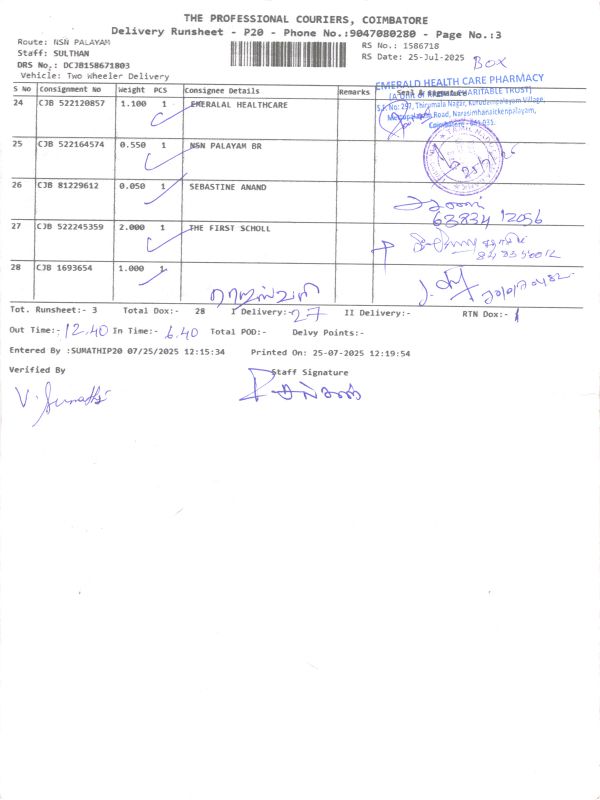 THE PROFESSIONAL COURIERS, COIMBATORE
Delivery Runsheet - P20 - Phone No.:9047080280 - Page No.:3
Route: NSN PALAYAM
RS No.: 1586718
Staff: SULTHAN
RS Date: 25-Jul-2025
BOX
DRS No.: DCJB158671803
Vehicle: Two Wheeler Delivery
EMERALD HEALTH CARE PHARMACY
S No Consignment No Weight PCS Consignee Details Remarks Seal & signature
CHARITABLE TRUST)
S.F. No: 297, Thirumala Nagar, Kurudampalayam Village,
Road, Narasimhanaickenpalayam,
Coimbatore - 641 031.
24 CJB 522120857 1.100 1 EMERALAL HEALTHCARE
25 CJB 522164574 0.550 1 NSN PALAYAM BR
26 CJB 81229612 0.050 1 SEBASTINE ANAND
68834 12056
27 CJB 522245359 2.000 1 THE FIRST SCHOLL
28 CJB 1693654 1.000 1
Tot. Runsheet:- 3 Total Dox:- 28 I Delivery:- 27 II Delivery:- RTN Dox:- 1
Out Time:- 12.40 In Time:- 6.40 Total POD:- Delvy Points:-
Entered By :SUMATHIP20 07/25/2025 12:15:34 Printed On: 25-07-2025 12:19:54
Verified By Staff Signature
V. Sumathi